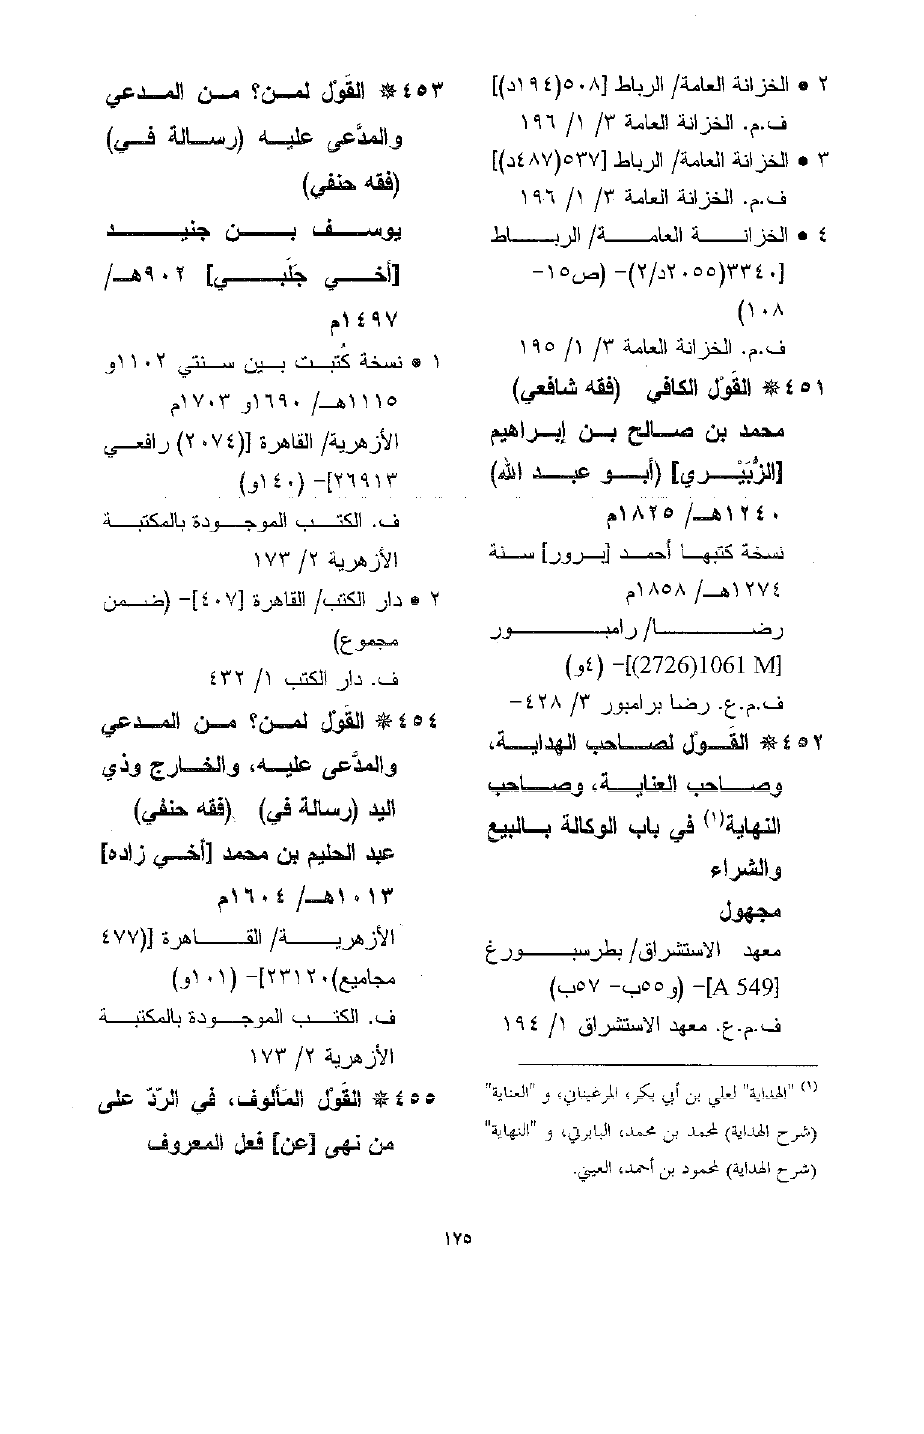 ٢ • الخزانة العامة/ الرباط [٥٠٨(١٩٤د)]
ف.م. الخزانة العامة ٣/ ١/ ١٩٦
٣ • الخزانة العامة/ الرباط [٥٣٧(٤٨٧د)]
ف.م. الخزانة العامة ٣/ ١/ ١٩٦
٤ • الخزانة العامة/ الرباط
[٣٣٤٠(٢٠٥٥د/٢)- (ص١٥-
١٠٨)
ف.م. الخزانة العامة ٣/ ١/ ١٩٥
٤٥١* القَوْل الكافي (فقه شافعي)
محمد بن صالح بن إبراهيم
[الزُّبَيْري] (أبو عبد الله)
١٢٤٠هـ/ ١٨٢٥م
نسخة كتبها أحمد [برور] سنة
١٢٧٤هـ/ ١٨٥٨م
رضا/ رامبور
[1061 M(2726)]- (٤و)
ف.م.ع. رضا برامبور ٣/ ٤٢٨-
٤٥٢* القَوْل لصاحب الهداية،
وصاحب العناية، وصاحب
النهاية(١) في باب الوكالة بالبيع
والشراء
مجهول
معهد الاستشراق/ بطرسبورغ
[A 549]- (و٥٥ب- ٥٧ب)
ف.م.ع. معهد الاستشراق ١/ ١٩٤
(١) "الهداية" لعلي بن أبي بكر، المرغيناني، و "العناية"
(شرح الهداية) لمحمد بن محمد، البابرتي، و "النهاية"
(شرح الهداية) لمحمود بن أحمد، العيني.
٤٥٣* القَوْل لمن؟ من المدعي
والمدَّعى عليه (رسالة في)
(فقه حنفي)
يوسف بن جنيد
[أخي جَلَبي] ٩٠٢هـ/
١٤٩٧م
١ • نسخة كُتبت بين سنتي ١١٠٢و
١١١٥هـ/ ١٦٩٠و ١٧٠٣م
الأزهرية/ القاهرة [(٢٠٧٤) رافعي
٢٦٩١٣]- (١٤٠و)
ف. الكتب الموجودة بالمكتبة
الأزهرية ٢/ ١٧٣
٢ • دار الكتب/ القاهرة [٤٠٧]- (ضمن
مجموع)
ف. دار الكتب ١/ ٤٣٢
٤٥٤* القَوْل لمن؟ من المدعي
والمدَّعى عليه، والخارج وذي
اليد (رسالة في) (فقه حنفي)
عبد الحليم بن محمد [أخي زاده]
١٠١٣هـ/ ١٦٠٤م
الأزهرية/ القاهرة [(٤٧٧
مجاميع)٢٣١٢٠]- (١٠١و)
ف. الكتب الموجودة بالمكتبة
الأزهرية ٢/ ١٧٣
٤٥٥* القَوْل المَألوف، في الرّدّ على
من نهى [عن] فعل المعروف
١٧٥